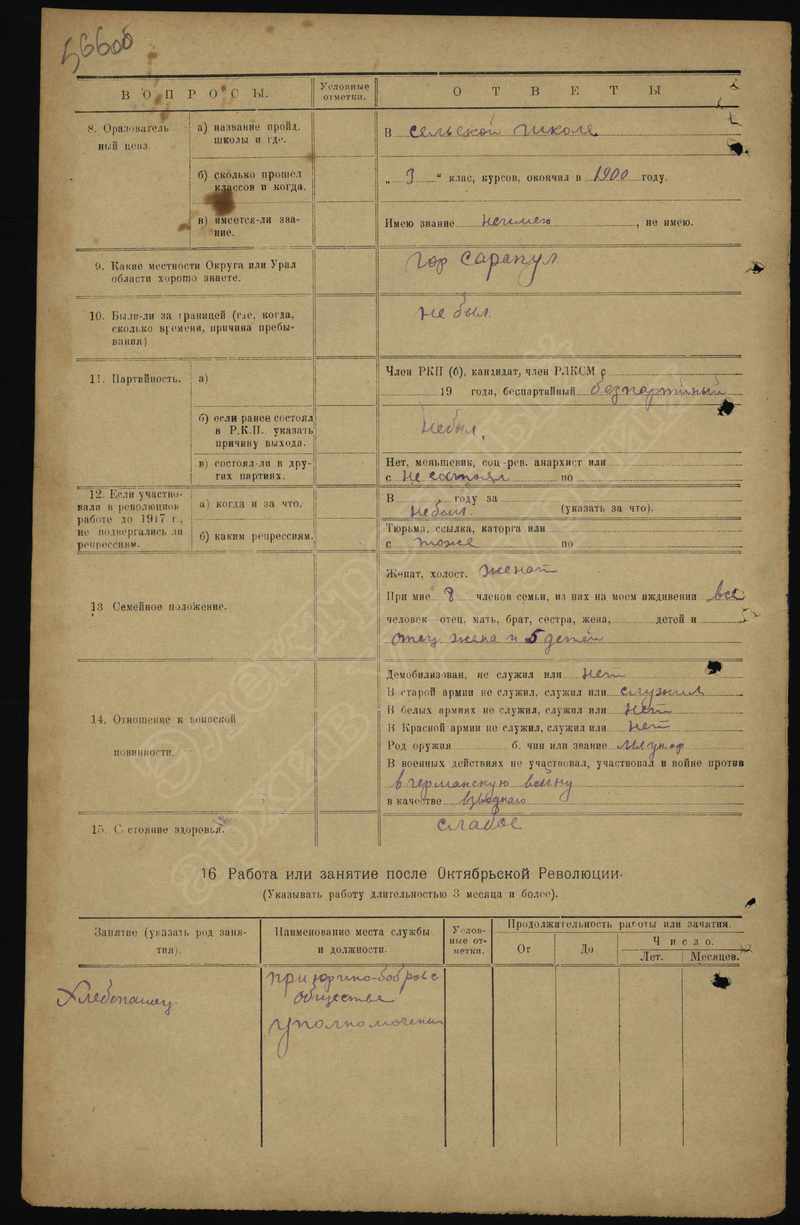 В О П Р О С Ы.
Условные
отметки.
О Т В Е Т Ы
8. Оразователь
ный ценз
а) название пройд.
школы и где.
В сельской школе
б) сколько прошел
классов и когда.
„ 3 “ клас, курсов, окончил в 1900 году.
в) имеется-ли зва-
ние.
Имею звание неимею, не имею.
9. Какие местности Округа или Урал
области хорошо знаете.
Гор Сарапул
10. Были-ли за границей (где, когда,
сколько времени, причина пребы-
вания)
не был.
11. Партийность.
а)
Член РКП (б), кандидат, член РЛКСМ с
19 года, беспартийный безпартийный
б) если ранее состоял
в Р.К.П. указать
причину выхода.
Небыл
в) состоял-ли в дру-
гих партиях.
Нет, меньшевик, соц-рев. анархист или
с не состоял по
12. Если участво-
вали в революцион
работе до 1917 г.,
не подвергались ли
репрессиям.
а) когда и за что.
В году за
небыл. (указать за что).
б) каким репрессиям.
Тюрьма, ссылка, каторга или
с тоже по
13 Семейное положение.
Женат, холост. Женат
При мне 8 членов семьи, из них на моем иждивении все
человек—отец, мать, брат, сестра, жена, детей и
отец жена и 5 детей
14. Отношение к воиской
повинности.
Демобилизован, не служил или Нет
В старой армии не служил, служил или служил
В белых армиях не служил, служил или Нет
В Красной армии не служил, служил или Нет
Род оружия б. чин или звание
В военных действиях не участвовал, участвовал в войне против
в германскую войну
в качестве взводнаго
15. Состояние здоровья.
слабое
16 Работа или занятие после Октябрьской Революции.
(Указывать работу длительностью 3 месяца и более).
Занятие (указать род заня-
тия).
Наименование места службы
и должности.
Услов-
ные от-
метки.
Продолжительность работы или занятия.
От
До
Число.
Лет.
Месяцев.
Хлебопашец
при
обществе
уполномоченым